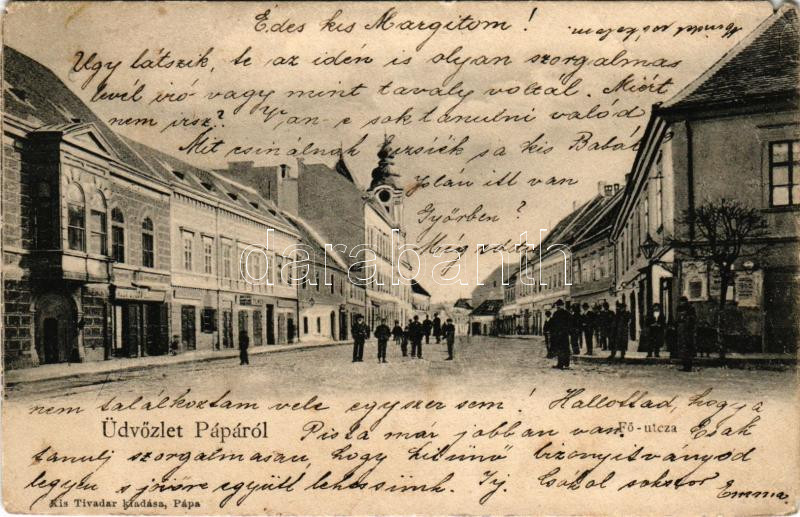 Édes kis Margitom!
Úgy látszik, te az idén is olyan szorgalmas
levél iró vagy mint tavaly voltál. Miért
nem irsz? Van-e sok tanulni valód
Mit csinálnak s a kis Babá
Jolán itt van
Győrben?
Még
darabanth
nem találkoztam vele egyszer sem! Hallottad, hogy a
Üdvözlet Pápáról
Pista már jobban van. Csak
Fő-utcza
tanulj szorgalmasan hogy kitünő bizonyitványod
legyen s jövőre együtt lehessünk. Irj. Csókol sokszor
Emma
Kis Tivadar kiadása, Pápa